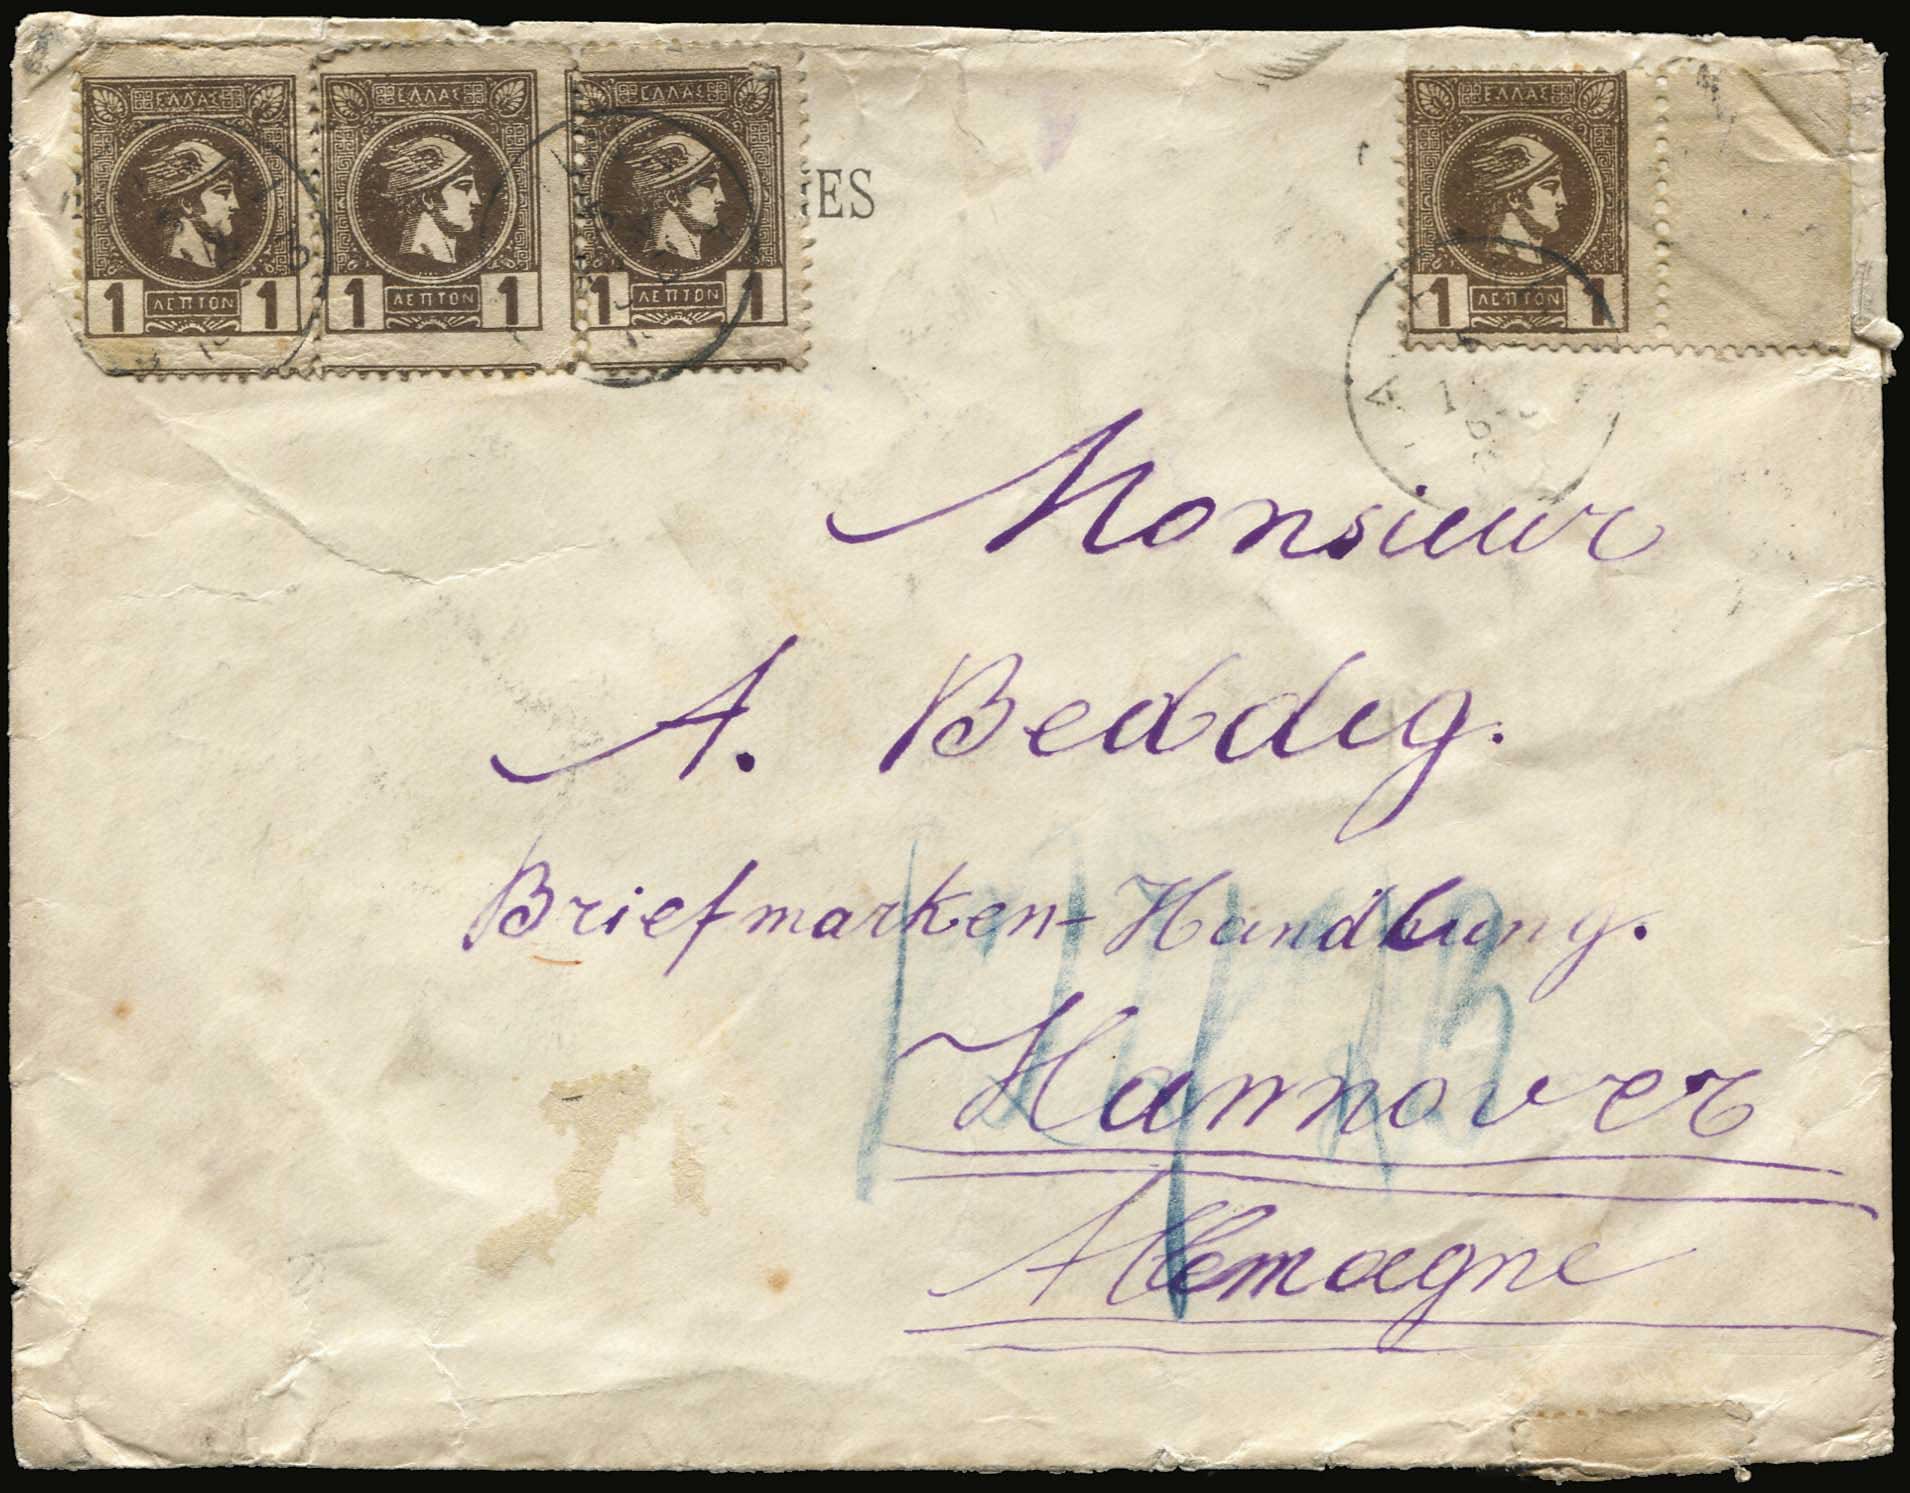 ΕΛΛΑΣ ΕΛΛΑΣ ΕΛΛΑΣ ΕΛΛΑΣ
1 ΛΕΠΤΟΝ 1 1 ΛΕΠΤΟΝ 1 1 ΛΕΠΤΟΝ 1 1 ΛΕΠΤΟΝ 1
ES
Monsieur
A. Beddig.
Briefmarken-Handlung.
Hannover
Allemagne